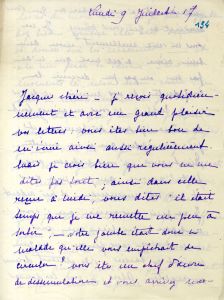 Lundi 9 Juillet 17
194
Jacques chéri — je reçois quotidien-
nement et avec un grand plaisir
vos lettres, vous êtes bien bon de
m'écrire ainsi aussi régulièrement
mais je crois bien que vous ne me
dites pas tout ; ainsi dans celle
reçue à midi, vous dites "il était
temps que je me remette un peu à
sortir" — votre jambe était donc si
malade qu'elle vous empêchait de
circuler ? vous êtes un chef d'œuvre
de dissimulation et vous arrivez